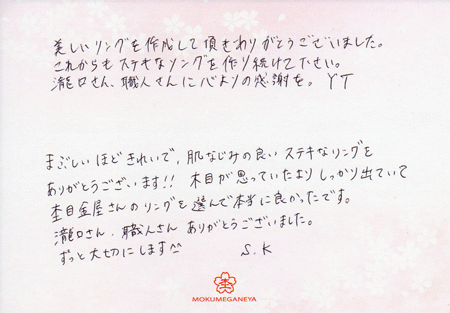 美しいリングを作成して頂きありがとうございました。
これからもステキなリングを作り続けて下さい。
瀧口さん、職人さんに心よりの感謝を。 YT
まぶしいほどきれいで、肌なじみの良いステキなリングを
ありがとうございます!! 木目が思っていたよりしっかり出ていて
杢目金屋さんのリングを選んで本当に良かったです。
瀧口さん、職人さん ありがとうございました。
ずっと大切にします^^ S.K
MOKUMEGANEYA